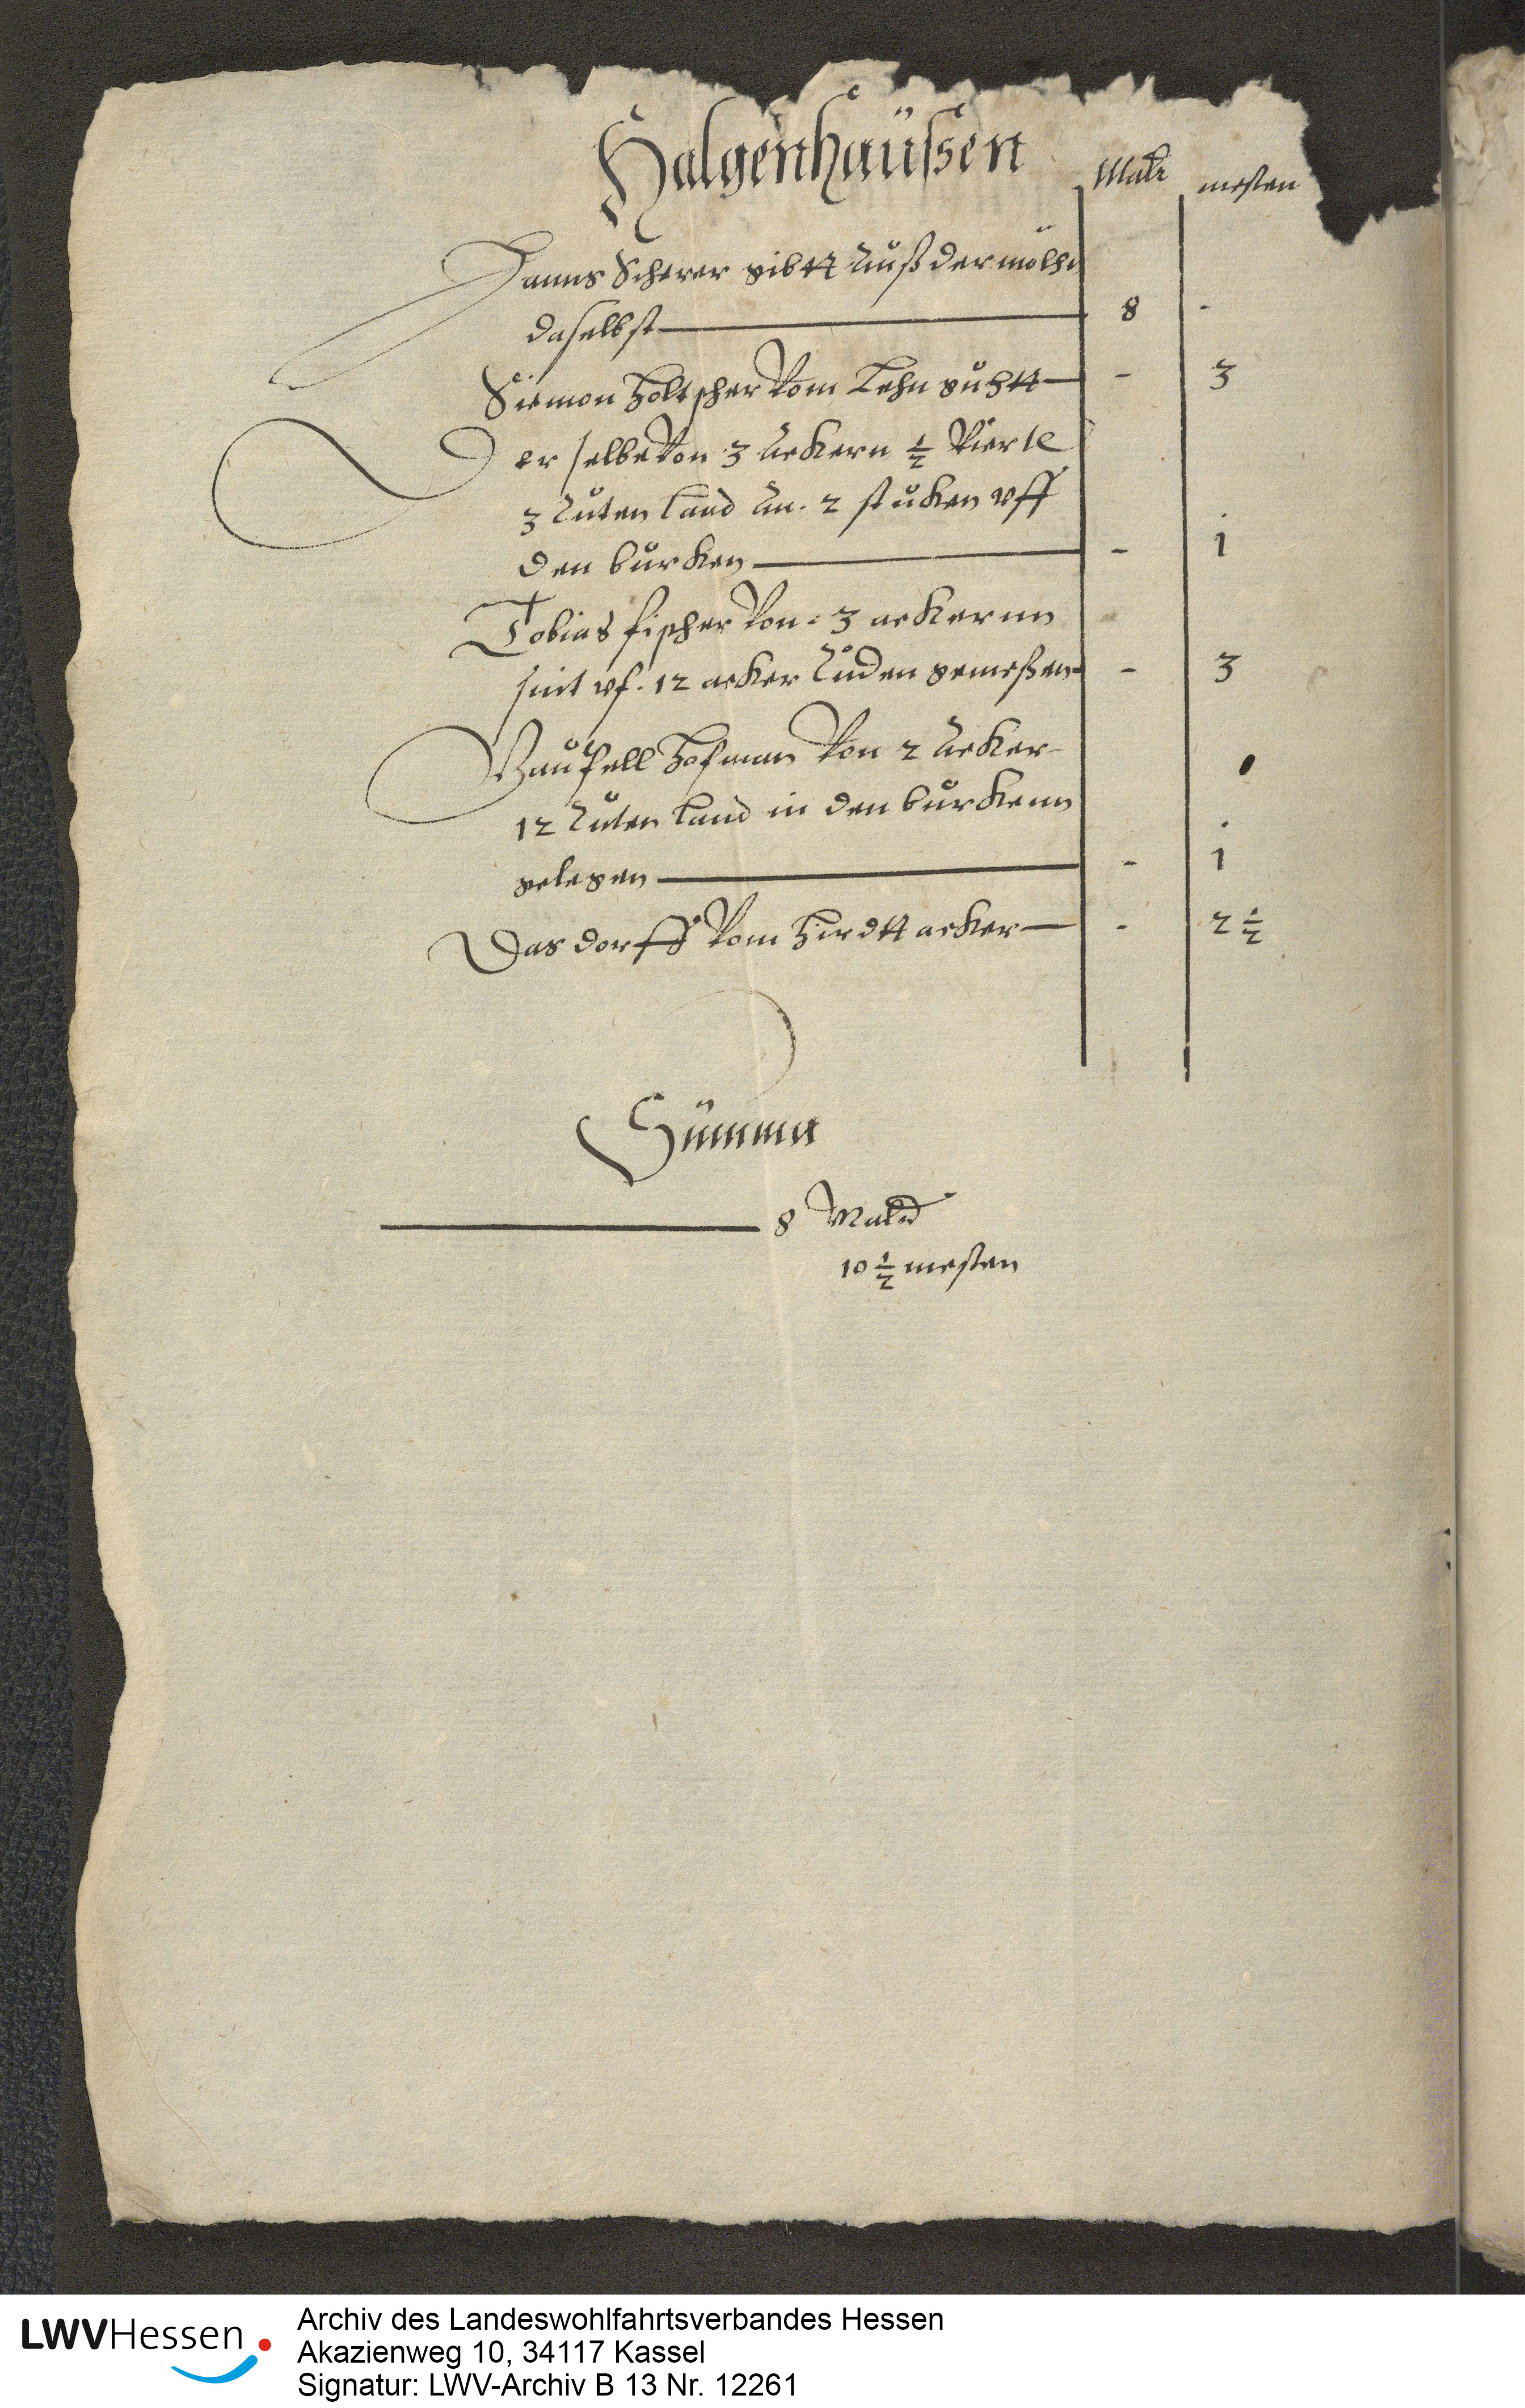 Halgenhaüssen
Maltr mesten
Hanns Scherer gibtt Auß der mölhn
daselbst 8 -
Siemon Holtscher Vom Lehn guhtt - 3
Der selbe Von 3 Ackern ½ Viertel
3 Ruten Land An 2 stucken vff
den burcken - 1
Tobias fischer Von 3 ackernn
sint vf. 12 acker Ruden gemeßen - 3
Hofman Von 2 Acker
12 Ruten Land in den burckenn
gelegen - 1
Das dorff Vom Hirdtt acker - 2 ½
Summa
8 Maltr
10 ½ mesten
LWVHessen
Archiv des Landeswohlfahrtsverbandes Hessen
Akazienweg 10, 34117 Kassel
Signatur: LWV-Archiv B 13 Nr. 12261